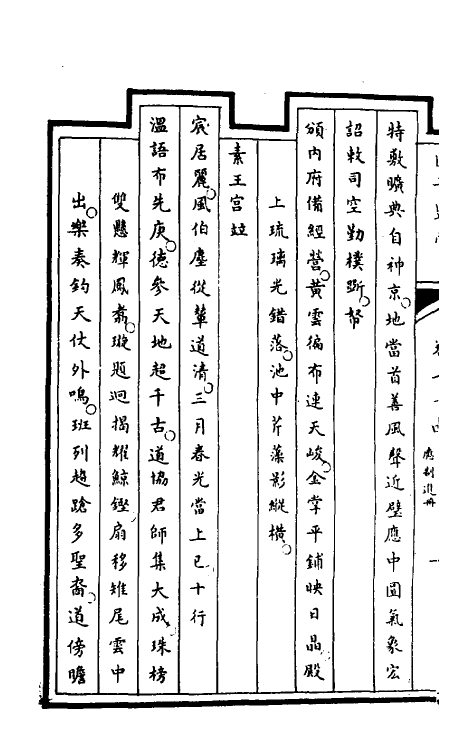 特敷曠典自神京地當首善風聲近璧應中圖氣象宏
詔敕司空勤樸斵帑
頒內府備經營黃雲徧布連天峻金掌平鋪映日晶殿
上琉璃光錯落池中芹藻影縱橫
素王宮並
宸居麗風伯塵從輦道清三月春光當上巳十行
溫語布先庚德參天地超千古道協君師集大成珠榜
雙懸輝鳳翥璇題迥揭耀鯨鏗扇移雉尾雲中
出樂奏鈞天仗外鳴班列趨蹌多聖裔道傍瞻
應制進冊
一